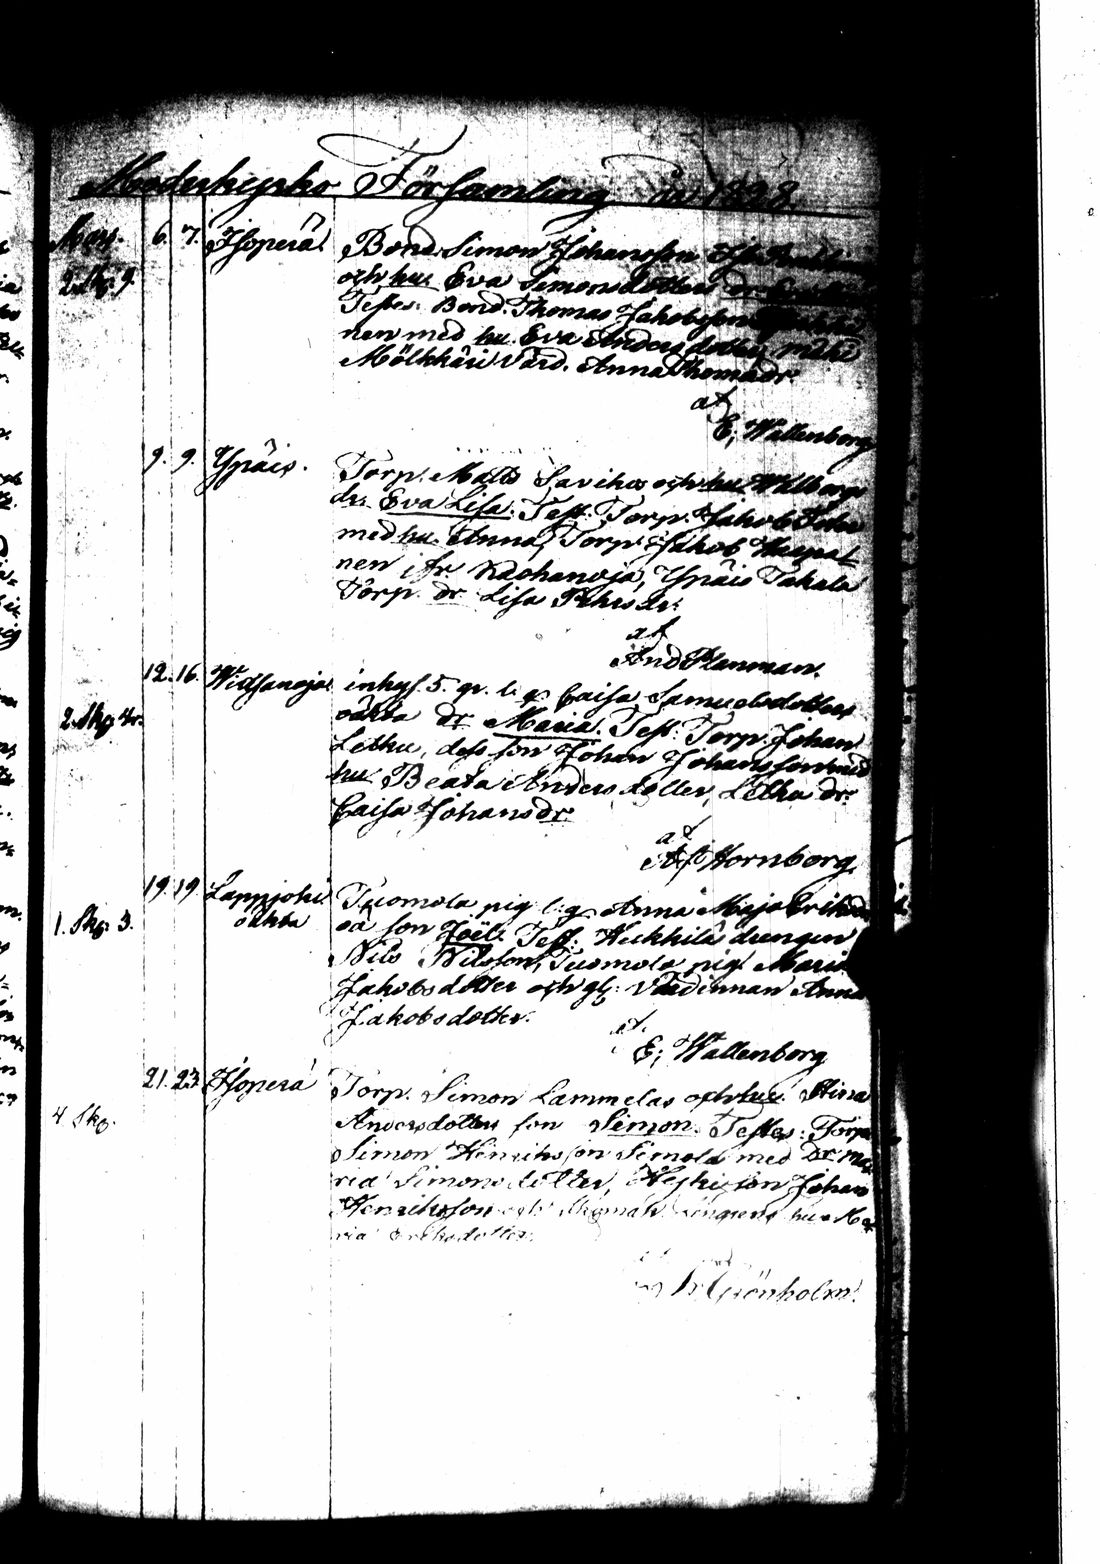 Moderkyrko Församling år 1828.
Mars. 6. 7. Ilsoperä Bond. Simon Johansson
2. Skp. 9. och hu. Eva Simonsdotters dr.
Testes: Bond. Thomas Jakobsson
nen med hu. Eva Andersdotter, mäki
Mölkkäri Värd. Anna Thomædr.
af
E; Wallenberg
9. 9. Ypäis. Torp. Matts Savikos och hu. Walborgs
dr. Eva Lisa. Test: Torp. Jakob
med hu. Anna, Torp. Jakob Haapa
nen ifr. Kaohanoja, Ypäis Takala
Torp. dr. Lisa Pehrsdr.
af
And Planman.
12. 16. Widsanoja inhys. 5. gr. l. q. Caisa Samuelsdotters
2. Skp 4r. oäkta dr. Maria. Test: Torp. Johan
Lethu, dess son Johan Johansson med
hu. Beata Andersdotter, Letku dr.
Caisa Johansdr.
af
Af Hornborg
19. 19. Lappjoki Tuomola pig. l. q. Anna Maja Eriksdrs
1. Skp. 3. oäkta oä son Joël. Test: Heikkilä drengen
Nils Nilsson, Tuomola pig. Maria
Jakobsdotter och gl. Värdinnan Anna
Jakobsdotter.
af.
E; Wallenberg
21. 23. Ilsoperä Torp. Simon Lammelas och hu. Stina
4 Skp. Andersdotters son Simon. Testes: Torp.
Simon Henriksson Simola med Dr. Ma
ria Simonsdotter, son Johan
Henriksson och hu. Ma
ria Eriksdotter.
af
Grönholm.